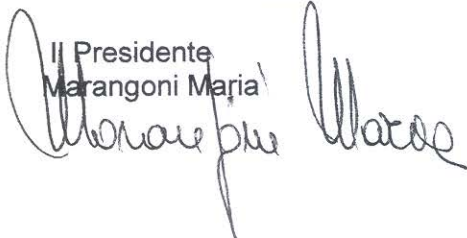 Il Presidente
Marangoni Maria
Marangoni Maria